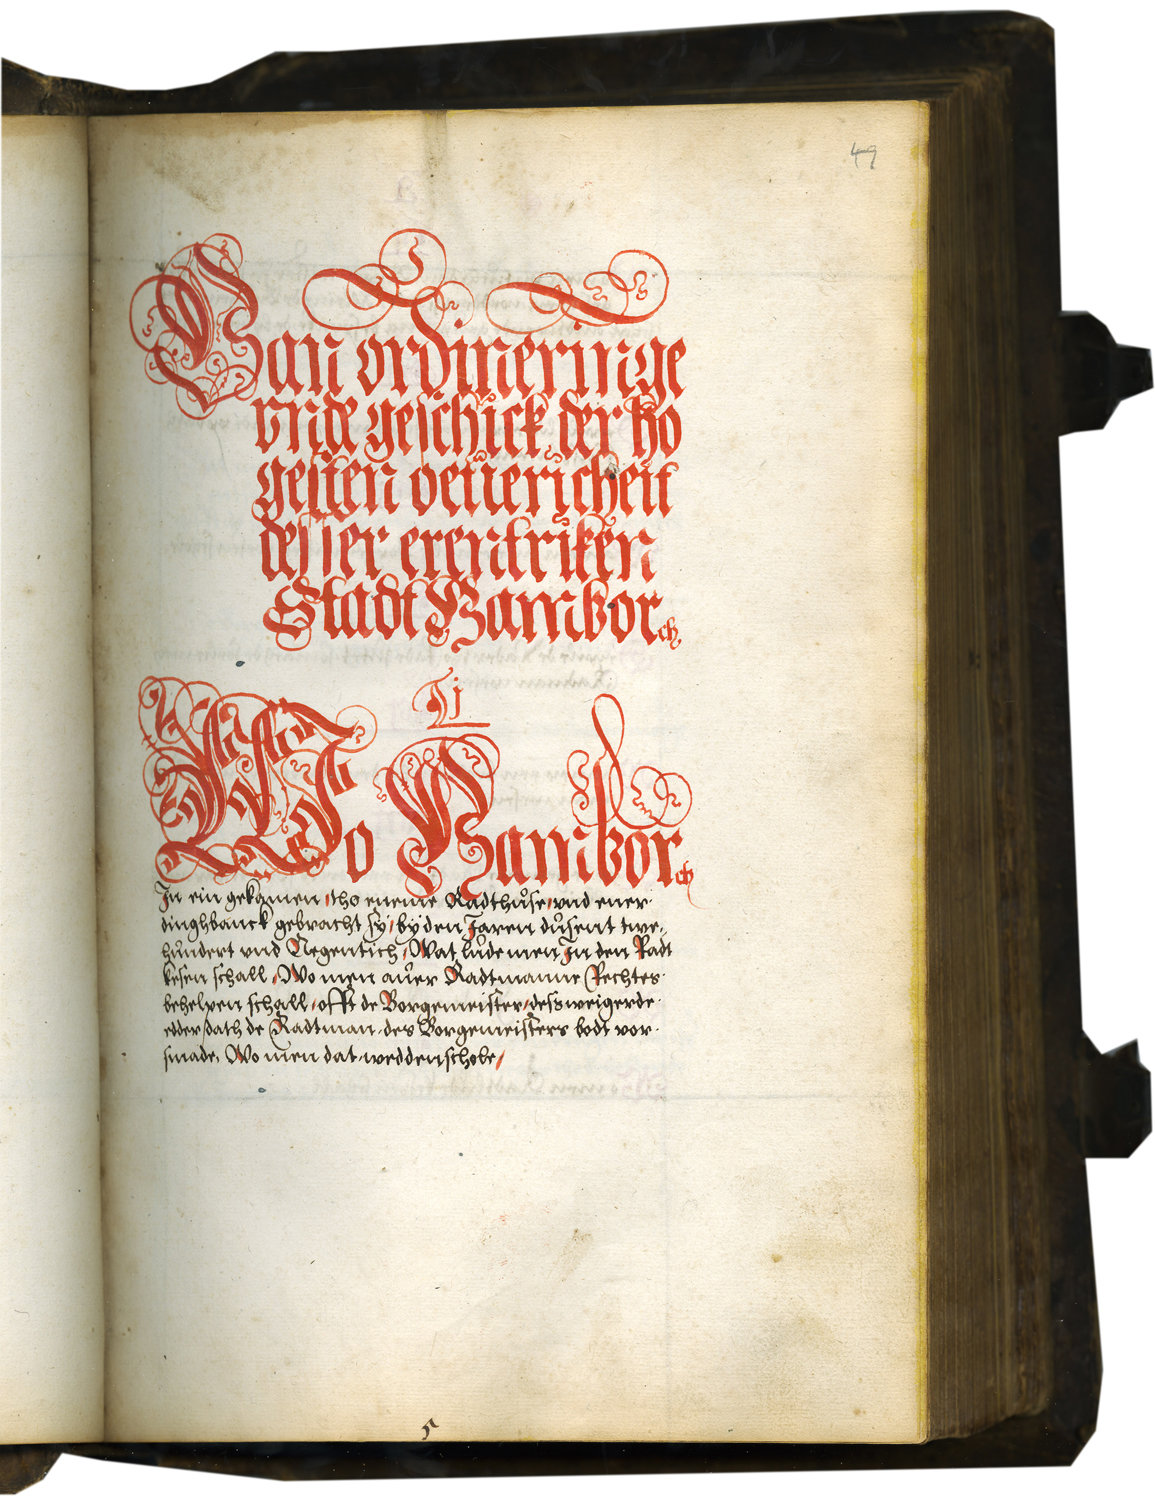 49
Van ordineringe
vnde geschick der ho
gesten ouericheit
desser erentriken
Stadt Hamborch
I
Wo Hamborch
In ein gekamen, tho eneme Radthuse, vnd ener
dinghbanck gebracht sy, by den Jaren dusent twe
hundert vnd Negentich, Wat lude men In den Radt
kesen schall, Wo men auer Radtmanne Rechtes
behelpen schall, offt de Borgemeister, dess weigerde
edder dath de Radtman, des Borgemeisters bodt vor
smade, Wo men dat wedden schole,